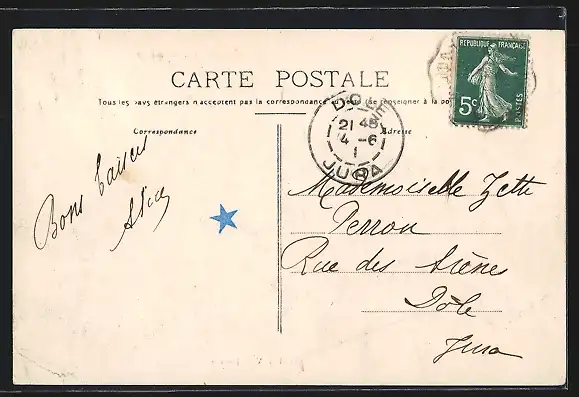 CARTE POSTALE
REPUBLIQUE FRANÇAISE
5c
POSTES
Tous les pays étrangers n'acceptent pas la correspondance au recto (Se renseigner à la pos
Correspondance
Adresse
DOLE
21 45
4 -6
1
JURA
Bons baisers
Alice
Mademoiselle Zette
Perron
Rue des Arènes
Dôle
Jura